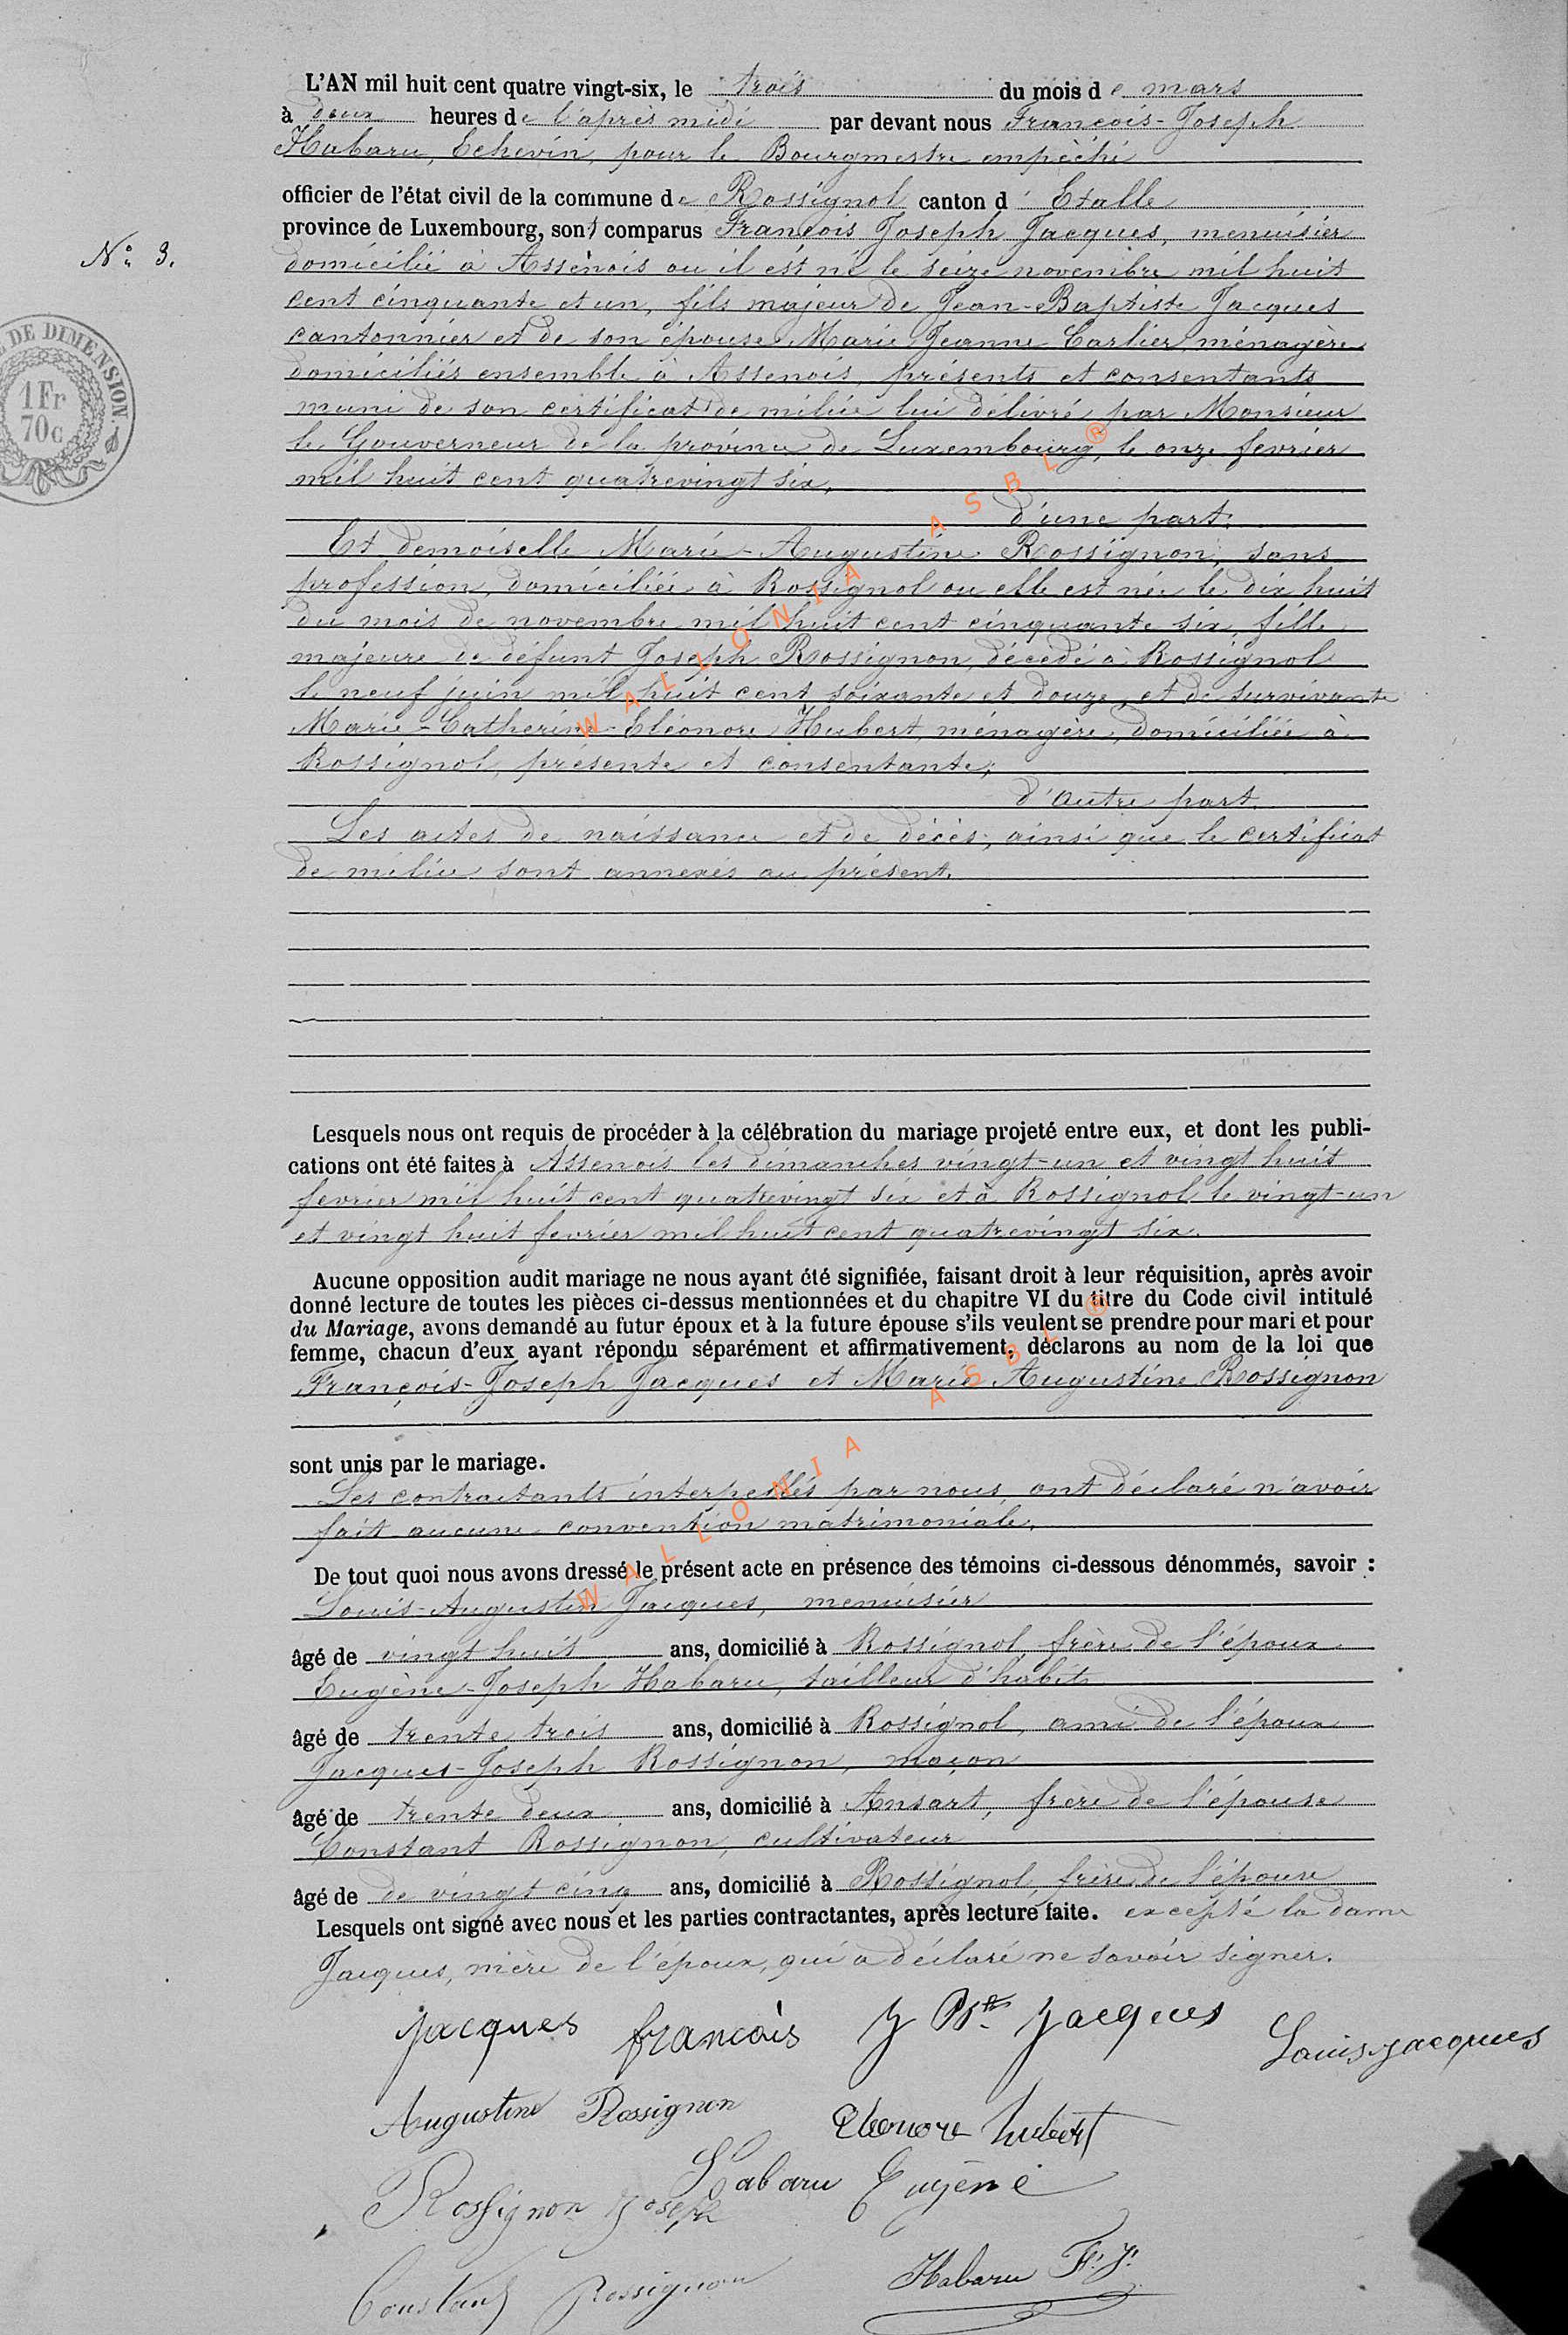 L'AN mil huit cent quatre vingt-six, le trois du mois de mars
à deux heures de l'après midi par devant nous François-Joseph
Habaru, Echevin, pour le Bourgmestre empêché
officier de l'état civil de la commune de Rossignol canton d'Etalle
province de Luxembourg, sont comparus François Joseph Jacques, menuisier
N° 3.
domicilié à Assenois ou il est né le seize novembre mil huit
cent cinquante et un, fils majeur de Jean-Baptiste Jacques
cantonnier et de son épouse Marie Jeanne Carlier ménagère
domiciliés ensemble à Assenois, présents et consentants
muni de son certificat de milice lui délivré par Monsieur
le Gouverneur de la province de Luxembourg, le onze fevrier
mil huit cent quatrevingt six,
d'une part.
DE DIMENSION.
1 Fr
70 c
Et demoiselle Marie-Augustine Rossignon, sans
profession, domiciliée à Rossignol ou elle est née le dix huit
du mois de novembre mil huit cent cinquante six, fille
majeure de défunt Joseph Rossignon, décédé à Rossignol
le neuf juin mil huit cent soixante et douze, et de survivante
Marie-Catherine-Eléonore Hubert, ménagère, domiciliée à
Rossignol, présente et consentante;
d'autre part.
Les actes de naissance et de décès, ainsi que le certificat
de milice sont annexés au présent.
Lesquels nous ont requis de procéder à la célébration du mariage projeté entre eux, et dont les publi-
cations ont été faites à Assenois les dimanches vingt-un et vingt huit
fevrier mil huit cent quatrevingt six et à Rossignol le vingt-un
et vingt huit fevrier mil huit cent quatrevingt six.
Aucune opposition audit mariage ne nous ayant été signifiée, faisant droit à leur réquisition, après avoir
donné lecture de toutes les pièces ci-dessus mentionnées et du chapitre VI du titre du Code civil intitulé
du Mariage, avons demandé au futur époux et à la future épouse s'ils veulent se prendre pour mari et pour
femme, chacun d'eux ayant répondu séparément et affirmativement, déclarons au nom de la loi que
François-Joseph Jacques et Marie Augustine Rossignon
sont unis par le mariage.
Les contractants interpellés par nous, ont déclaré n'avoir
fait aucune convention matrimoniale.
De tout quoi nous avons dressé le présent acte en présence des témoins ci-dessous dénommés, savoir :
Louis-Augustin Jacques, menuisier
âgé de vingt huit ans, domicilié à Rossignol frère de l'époux
Eugène-Joseph Habaru, tailleur d'habits
âgé de trente trois ans, domicilié à Rossignol, ami de l'époux
Jacques-Joseph Rossignon, maçon
âgé de trente deux ans, domicilié à Ansart, frère de l'épouse
Constant Rossignon, cultivateur
âgé de de vingt cinq ans, domicilié à Rossignol, frère de l'épouse
Lesquels ont signé avec nous et les parties contractantes, après lecture faite. excepté la dame
Jacques, mère de l'époux, qui a déclaré ne savoir signer.
Jacques francois J Bte Jacques Louis Jacques
Augustine Rossignon Eleonore hubert
Habaru Eugène
Rossignon Joseph
Constant Rossignon Habaru F. J.
WALLONIA ASBL ®
WALLONIA ASBL ®